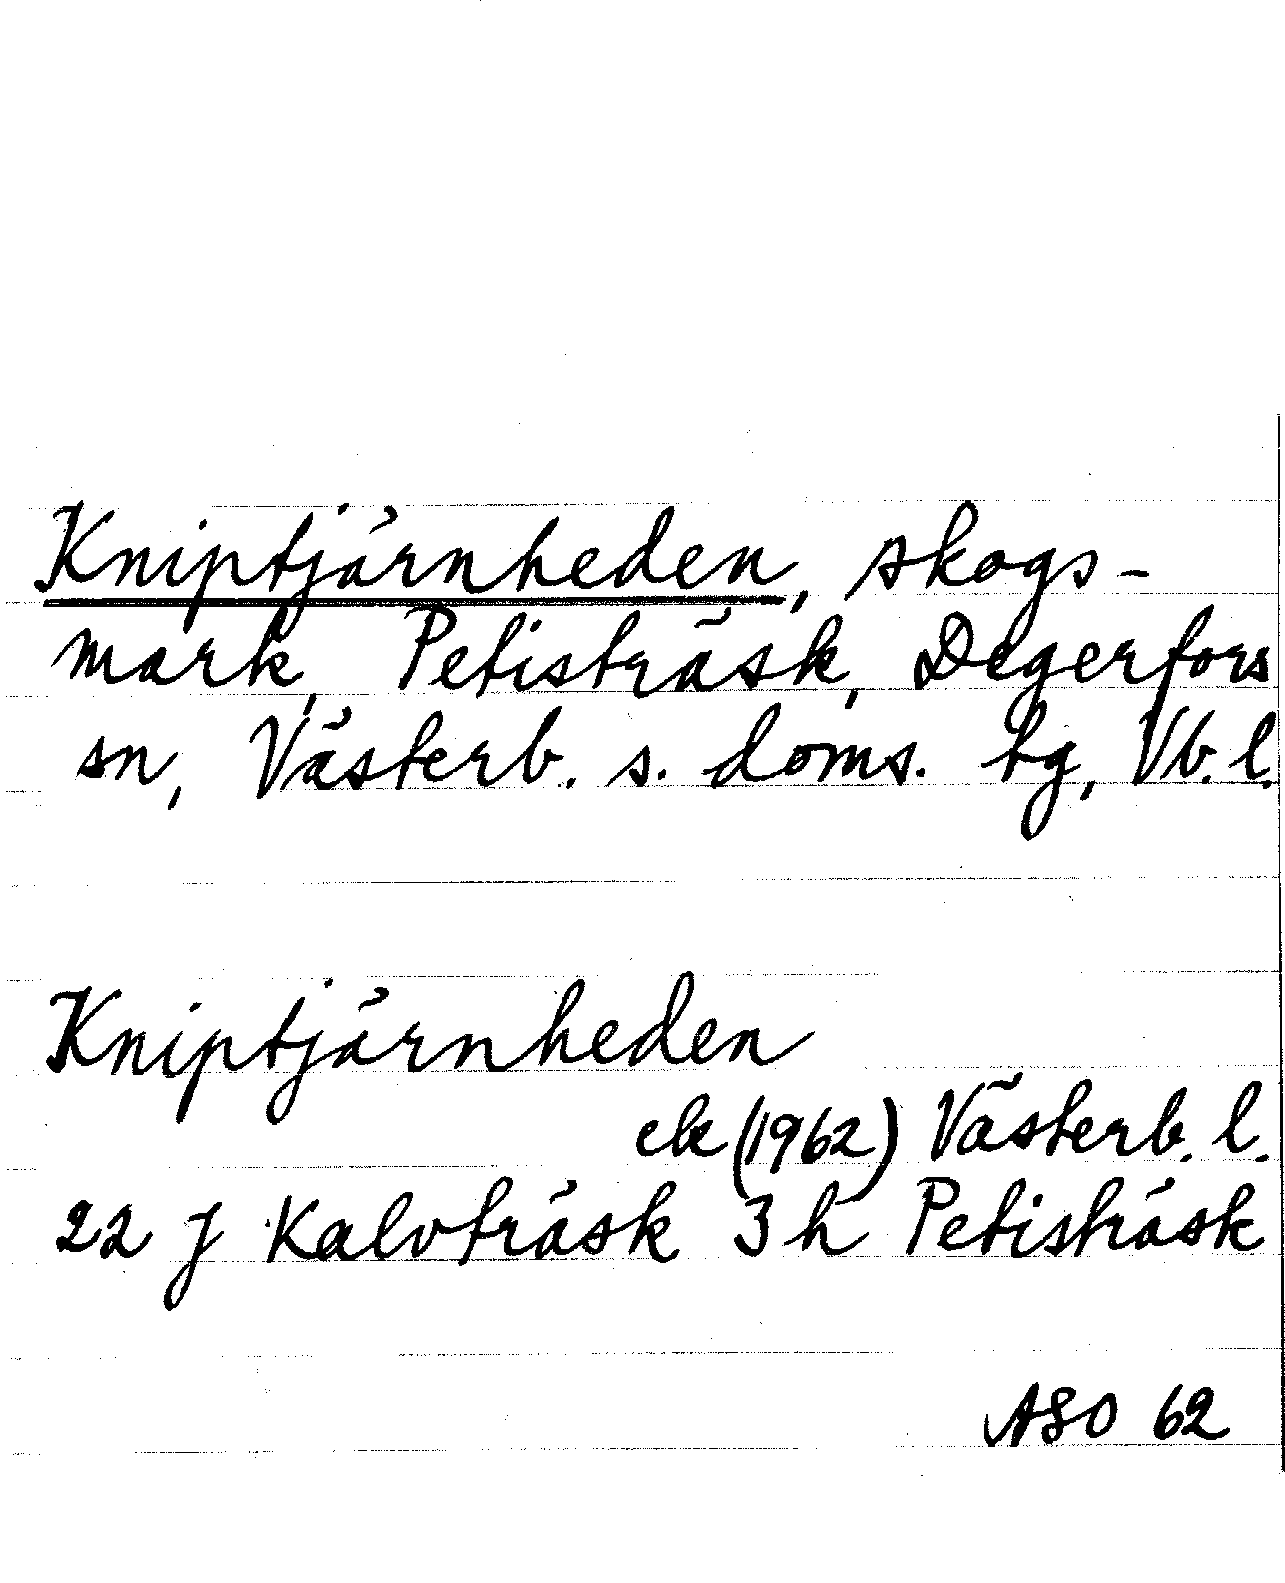 Kniptjärnheden, skogs-
mark, Petisträsk, Degerfors
sn, Västerb. s. doms. tg, Vb. l.
Kniptjärnheden
ek (1962) Västerb. l.
22 J Kalvträsk 3 h Petisträsk
ASO 62